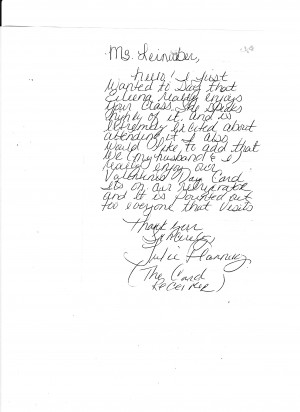 Ms. Leinecker,
Hello! I just
wanted to say that
Eiliena really enjoys
your class, she speaks
highly of it, and is
extremely excited about
attending it. I also
would like to add that
we (my husband & I
really enjoy our
Valentines Day Card
its on our refrigerator
and it is pointed out
too everyone that visits
Thank you
Sincerely,
Julie Flannery
(The Card
Receiver)